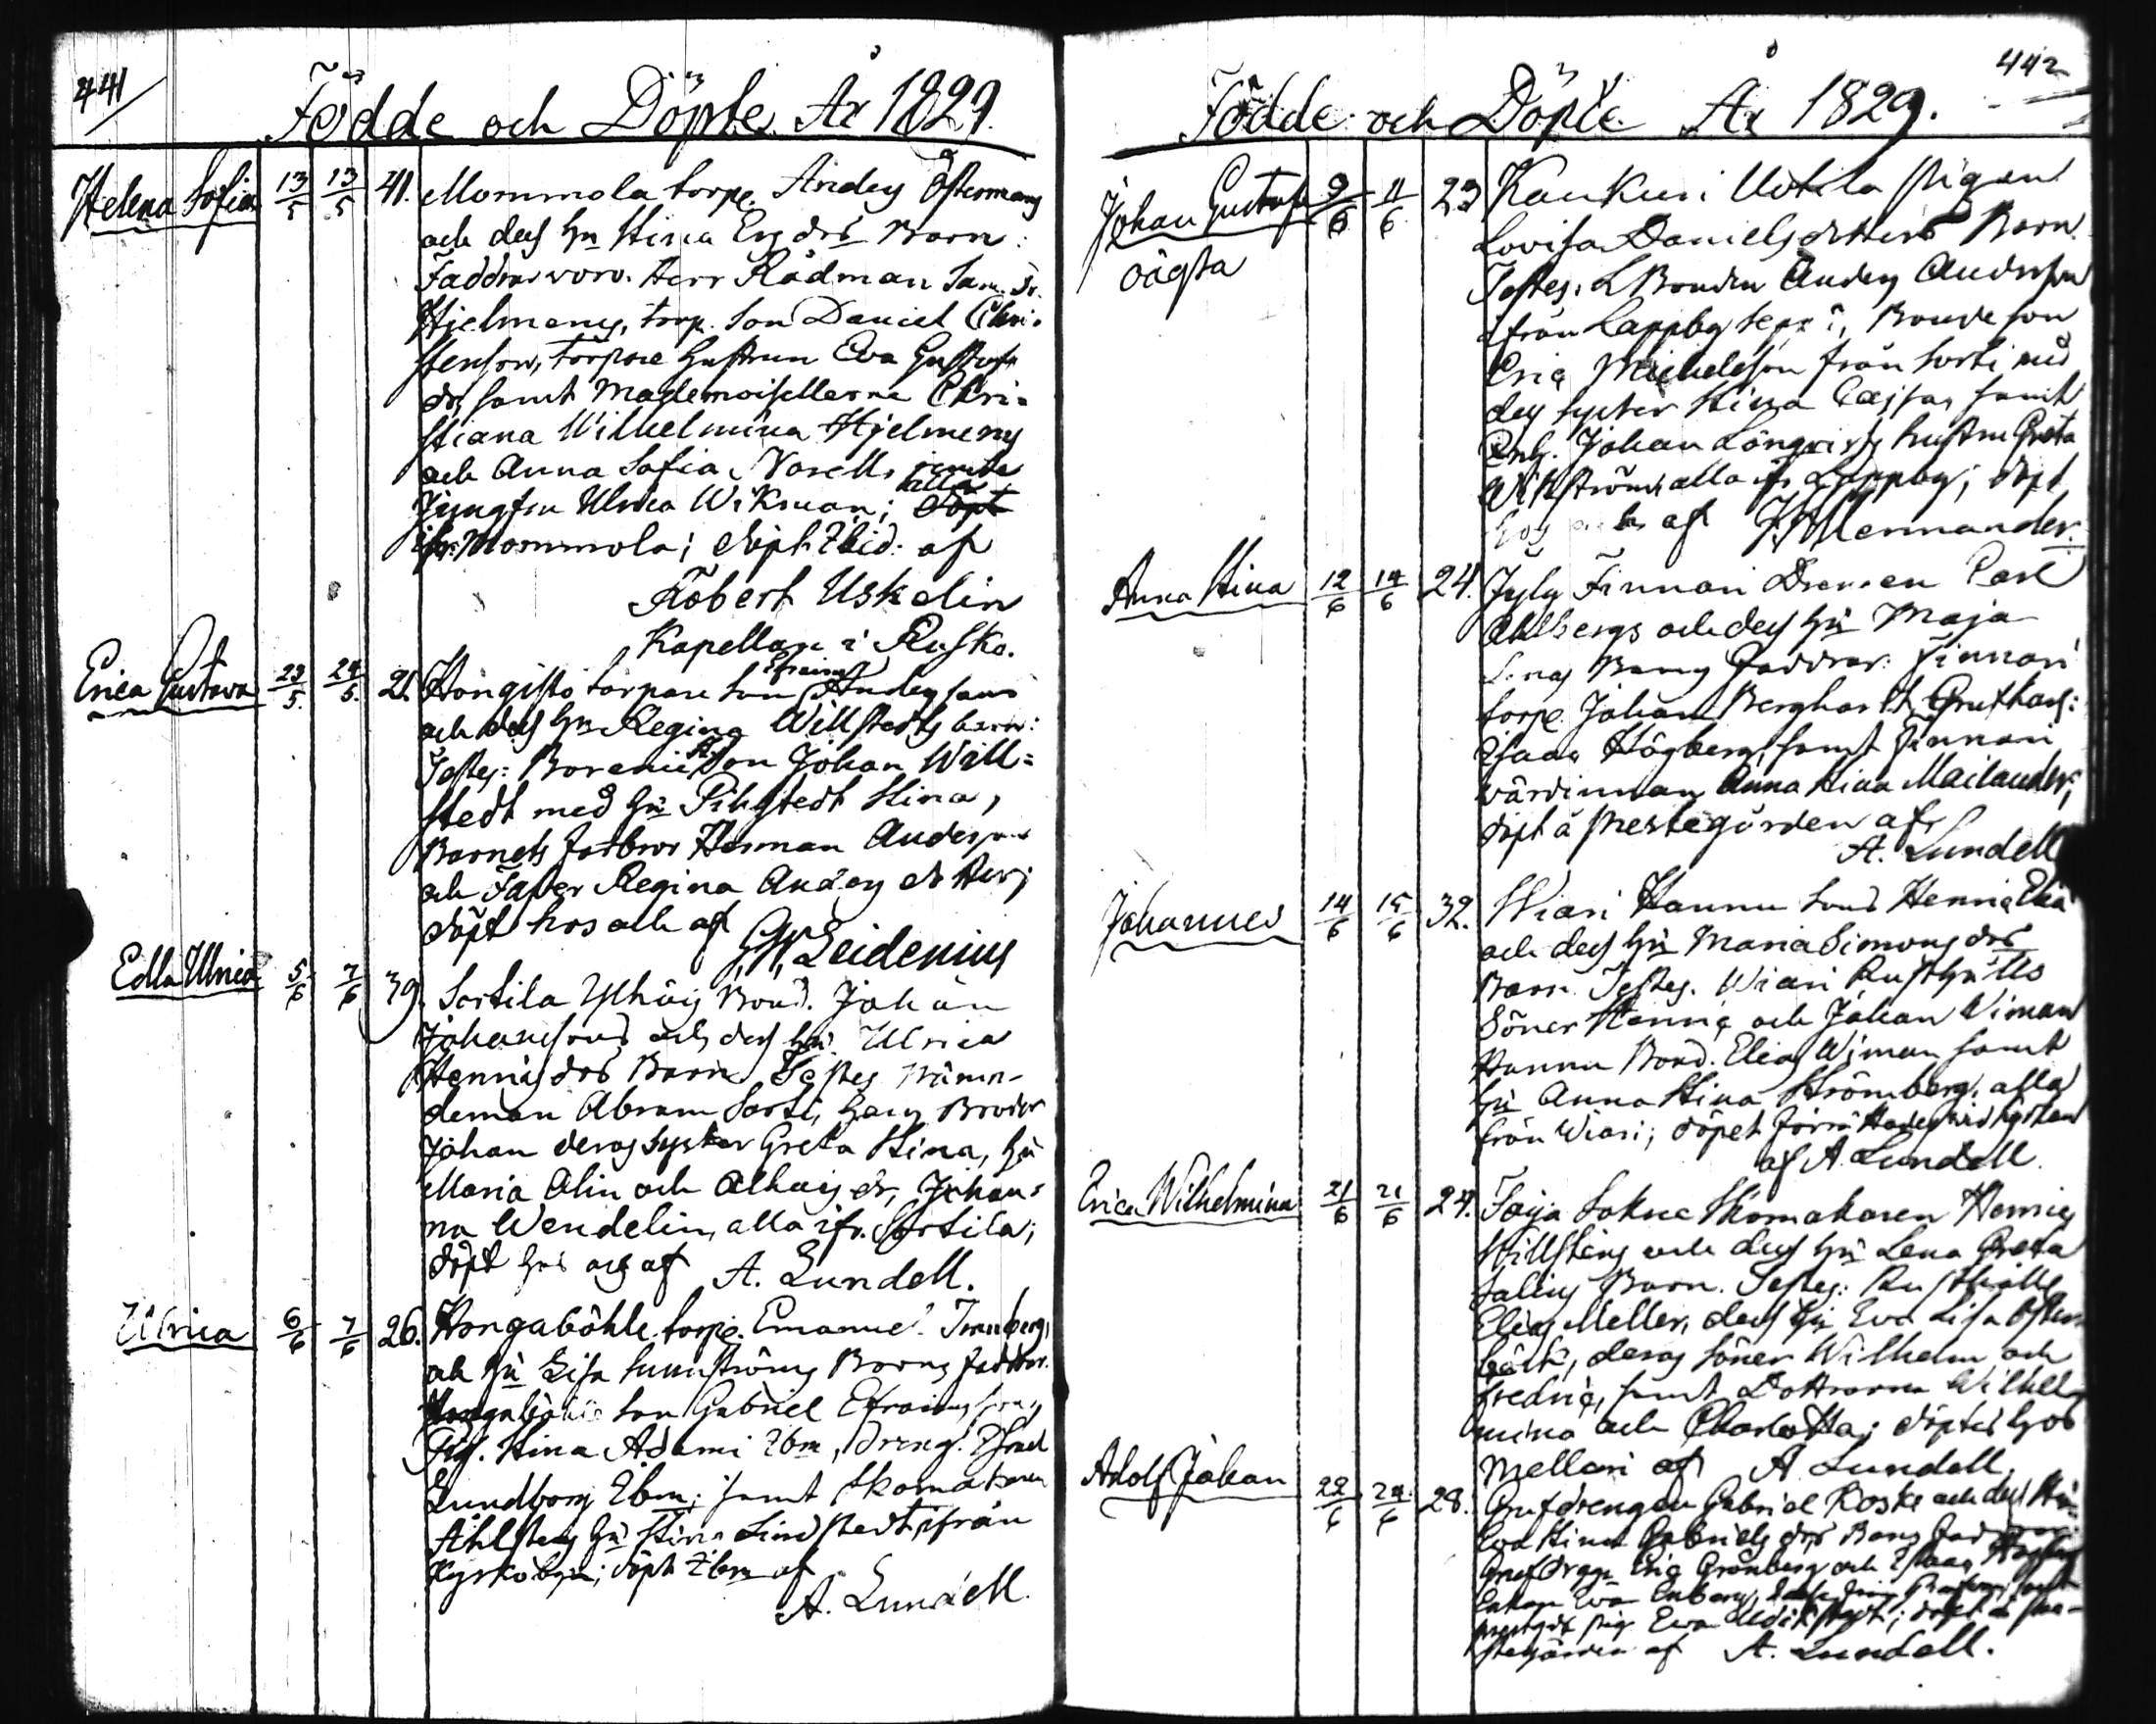 441
Födde och Döpte År 1829.
Helena Sofia 13/5 13/5 41. Mommola torp. Anders Östermans
och dess hu Stina Ersdrs Barn:
Faddrar voro. Herr Rådman Sam. Fr.
Hjelmens, torp. Son Daniel Chri-
stenson, Torpare hustrun Eva Gustafs
dr, samt Mademoisellerna Chri-
stiana Wilhelmina Hjelmens
och Anna Sofia Norell, jemte
Jungfru Ulrica Wikman; alla
ifr. Mommola; döpt Ibid. af
Robert Uskelin
Kapellan i Rusko.
Erica Gustava 23/5. 24/5. 21. Hongisto torpare Son Efraim Anderssons
och dess hu Regina Willstedts barn:
Testes: Son Johan Will-
stedt med hu Stina,
Barnets farbror Herman Andersson
och Faster Regina Anders dotter;
döpt hos och af G. W. Leidenius
Edla Ulrica 5/6 7/6 39. Sortila Bond. Johan
Johanssons och dess hu. Ulrica
Hennis drs Barn Testes Nämn-
deman Abram Sorti, hans Broder
Johan deras Syster Greta Stina, hu
Maria Alin och dr, Johan-
na Wendelin, alla ifr. Sortila;
döpt hos och af A. Lundell.
Ulrica 6/6 7/6 26. Hongaböhle torp. Emanuel
och hu Lisa Barns Faddrar.
Hongaböhle Son Gabriel Efraimsson,
Pig. Stina Adami Ibm, dreng. Israel
Lundborg Ibm; samt Skomakaren
Ahlstens hu Stina Lindstedt, från
Kyrkobyn; döpt Ibm af
A. Lundell.
442
Födde och Döpte År 1829.
Johan Gustaf 9/6 11/6 23 Kankuri Uotila pigan
oägta Lovisa Danielsdotters Barn.
Testes. Bonden Anders Andersson
från Lappby, Bonde son
Eric Michelsson från Sorti med
dess syster Stina Cajsa, samt
Johan Lönqvists hustru Greta
Wikström alla ifr Lappby; döpt
af Mennander.
Anna Stina 12/6 14/6 24. Finnari Drengen Carl
Ahlbergs och dess hu Maja
Lenas Barns Faddrar. Finnari
torp. Johan Berghardt,
Isaac Högberg, samt Finnari
värdinnan Anna Stina Mailander;
döpt å Prestegården af
A. Lundell
Johannes 14/6 15/6 32. Wiari Hannu Sons Henric Elia
och dess hu Maria Simons drs
Barn. Testes. Wiari Rusth.
Söner Henric och Johan Wiman
Hannu Bond. Elias Wiman samt
hu Anna Stina Strömberg, alla
från Wiari; döpet
af A. Lundell.
Erica Wilhelmina 21/6 21/6 24. Taija Sokne Skomakaren Henric
Hillstens och dess hu Lena Greta
Salins Barn. Testes: Rusthålls
Elias Meller, dess hu Eva Lisa
deras Söner Wilhelm och
Fredric, samt Döttrarna Wilhel-
mina och Charlotta; döptes hos
Mellari af A. Lundell.
Adolf Johan 22/6 24/6 28. Grufdrengen Gabriel Koski och dess
Eva Stina Gabriels drs Barns
Eric Grönberg och Isaac
Enkan Eva
pig Eva döpt å Pre-
stegården af A. Lundell.